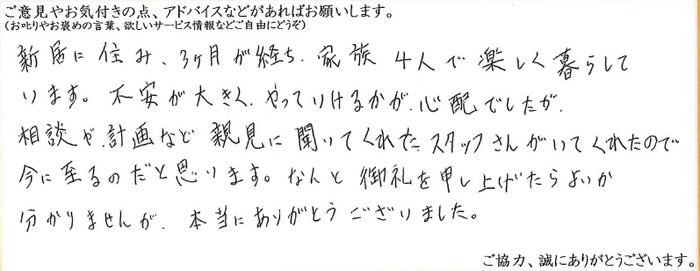 ご意見やお気付きの点、アドバイスなどがあればお願いします。
(お叱りやお褒めの言葉、欲しいサービス情報などご自由にどうぞ)
新居に住み、3ヶ月が経ち、家族4人で楽しく暮らして
います。不安が大きく、やっていけるかが、心配でしたが、
相談や、計画など親見に聞いてくれたスタッフさんがいてくれたので
今に至るのだと思います。なんと御礼を申し上げたらよいか
分かりませんが、本当にありがとうございました。
ご協力、誠にありがとうございます。